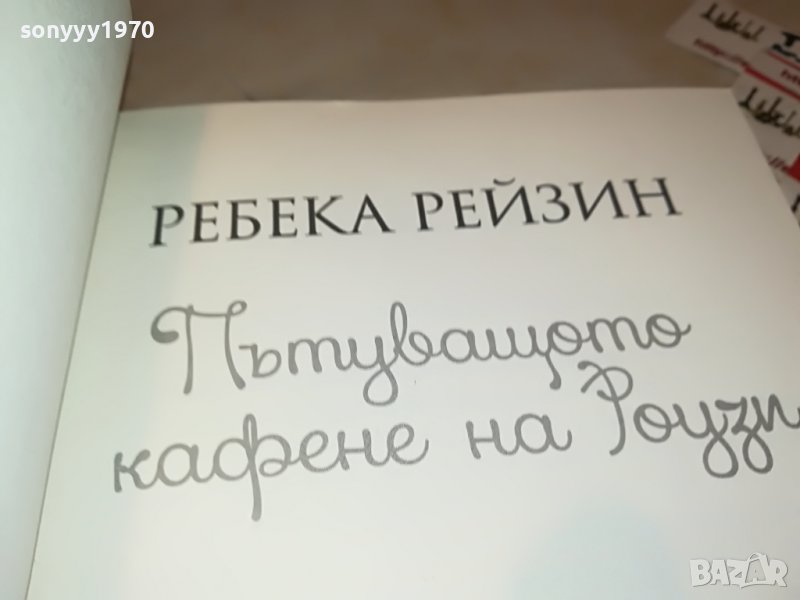 sonyyy1970
РЕБЕКА РЕЙЗИН
Пътуващото
кафене на Роузи
BAZAR